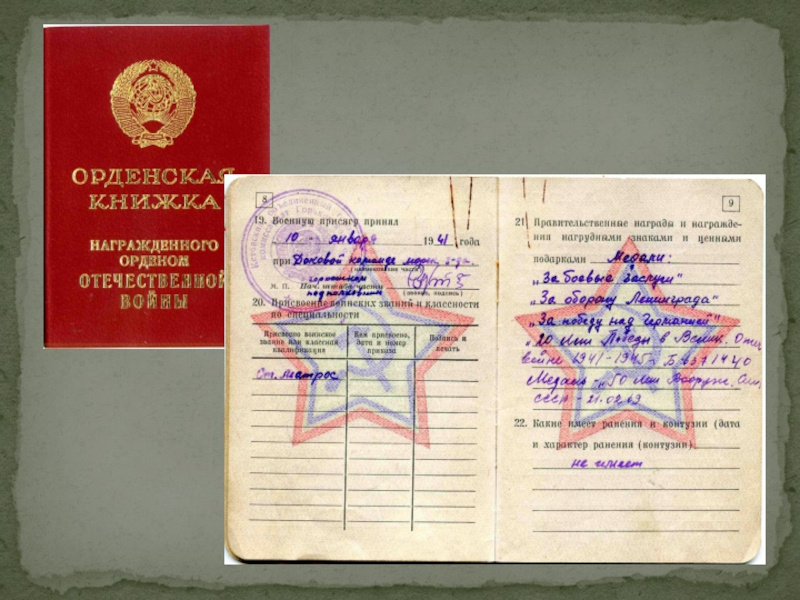 ОРДЕНСКАЯ
КНИЖКА
НАГРАЖДЕННОГО
ОРДЕНОМ
ОТЕЧЕСТВЕННОЙ
ВОЙНЫ
8
19. Военную присягу принял
10 - января 1941 года
при Доковой команде
(наименование части)
М. П. Нач. штаба части
подполковник
(звание, подпись)
20. Присвоение воинских званий и классности
по специальности
Присвоено воинское
звание или классная
квалификация
Кем присвоено,
дата и номер
приказа
Подпись и
печать
Ст. матрос
9
21. Правительственные награды и награжде-
ния нагрудными знаками и ценными
подарками Медали:
„За боевые Заслуги"
„За оборону Ленинграда"
„За победу над Германией"
„20 лет Победы в Велик. Отеч.
войне 1941-1945г. Б
Медаль - „50 лет Вооруж. Сил
СССР 21.02.69
22. Какие имеет ранения и контузии (дата
и характер ранения (контузии)
не имеет